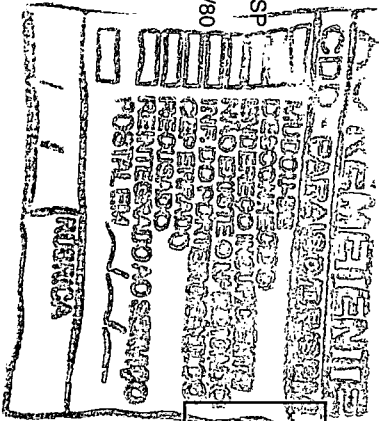 REMETENTE
CDD - PARAISO/BRASILIA
MUDOU-SE
DESCONHECIDO
ENDEREÇO INSUFICIENTE
NÃO EXISTE O Nº INDICADO
INF. DO PORTEIRO/SÍNDICO
CEP ERRADO
RECUSADO
REINTEGRADO AO SERVIÇO
POSTAL EM
RUBRICA
SP
/80